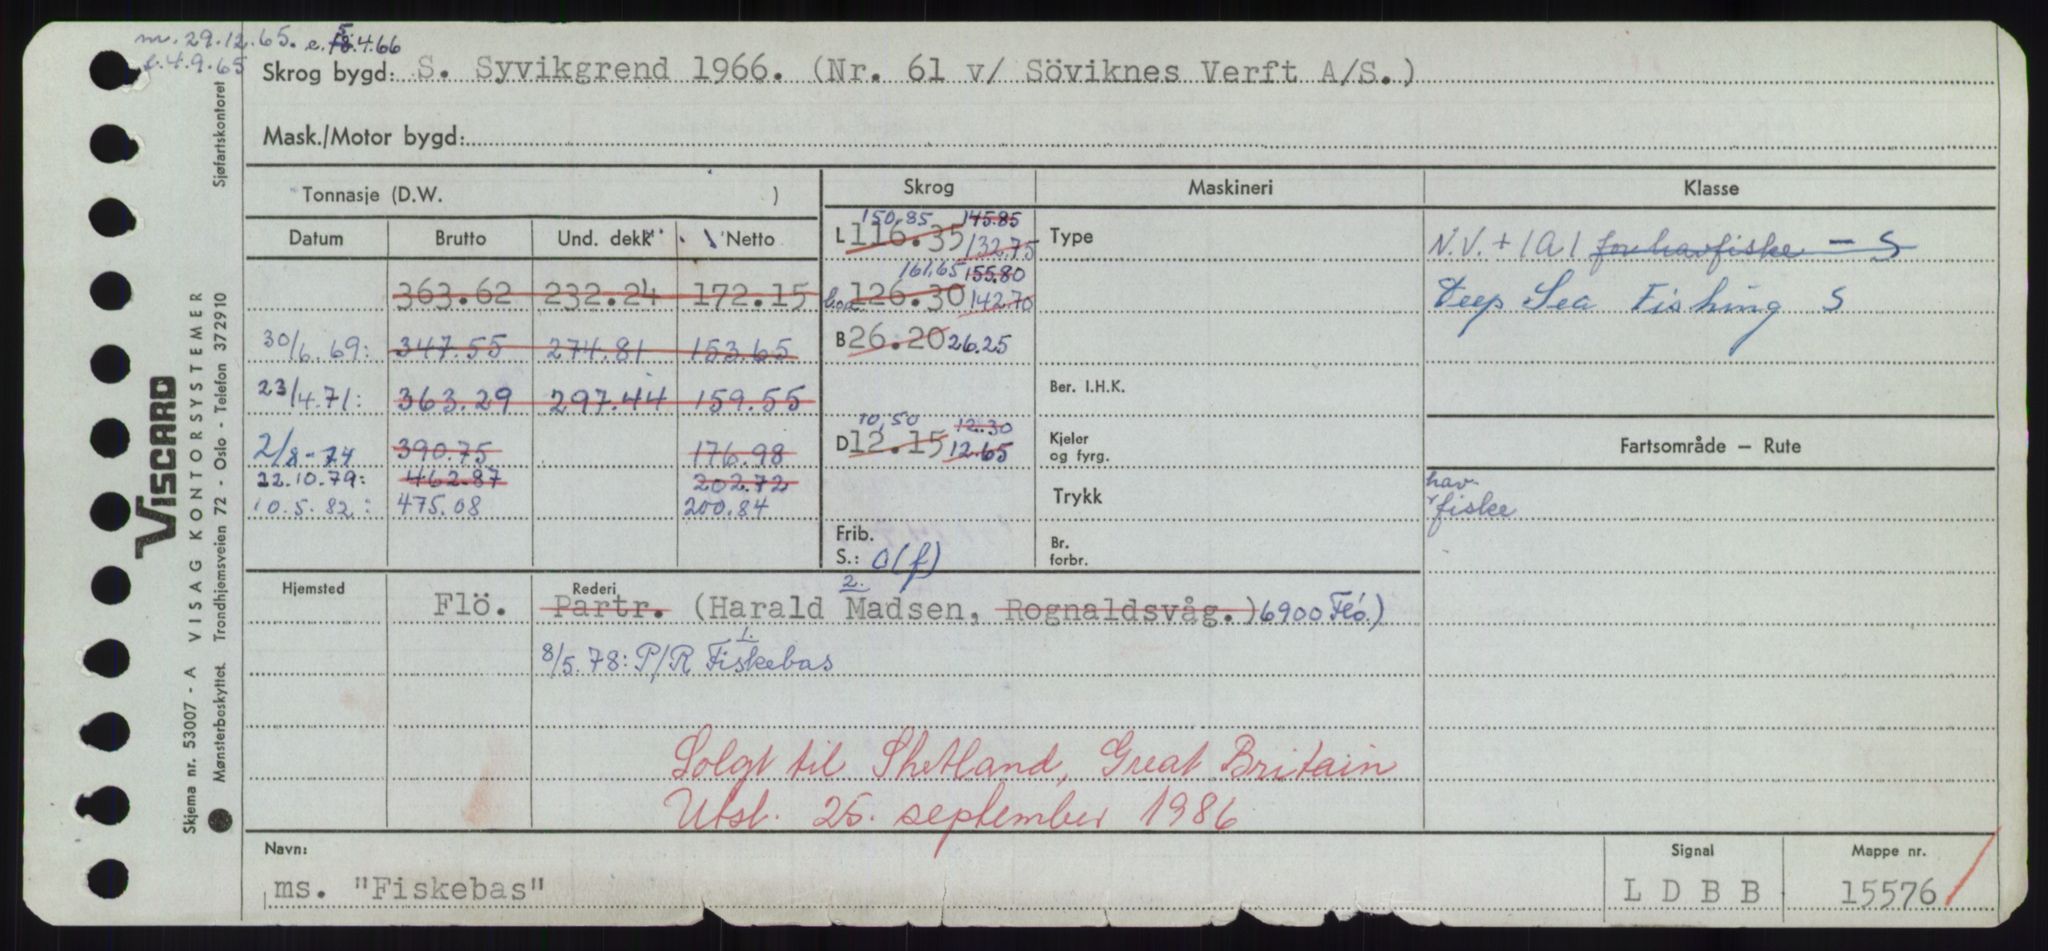 m. 29.12.65. e. 18.4.66
5
f. 4.9.65
Skrog bygd: S. Syvikgrend 1966. (Nr. 61 v/ Söviknes Verft A/S.)
Mask./Motor bygd:
Tonnasje (D.W. )
Skrog
Maskineri
Klasse
Datum
Brutto
Und. dekk
Netto
363.62 232.24 172.15
30/6.69: 347.55 274.81 153.65
23/4.71: 363.29 297.44 159.55
2/8-74 390.75 176.98
22.10.79: 462.87 202.72
10.5.82: 475.08 200.84
150.85 145.85
L 116.35 132.75
161.65 155.80
loa 126.30 142.70
B 26.20 26.25
10,50 12.30
D 12.15 12.65
Frib.
S.: 0(f)
Type
Ber. I.H.K.
Kjeler
og fyrg.
Trykk
Br.
forbr.
N.V. + 1A1 for havfiske - S
Deep Sea Fishing S
Fartsområde – Rute
hav-
fiske
Hjemsted
Flö.
Rederi
2.
Partr. (Harald Madsen, Rognaldsvåg.) 6900 Flö.)
1.
8/5.78: P/R Fiskebas
Solgt til Shetland, Great Britain
Utsl. 25. september 1986
Navn:
ms. "Fiskebas"
Signal
L D B B
Mappe nr.
15576
VISCARD
Skjema nr. 53007 - A VISAG KONTORSYSTEMER
Mønsterbeskyttet Trondhjemsveien 72 - Oslo - Telefon 372910 Sjøfartskontoret